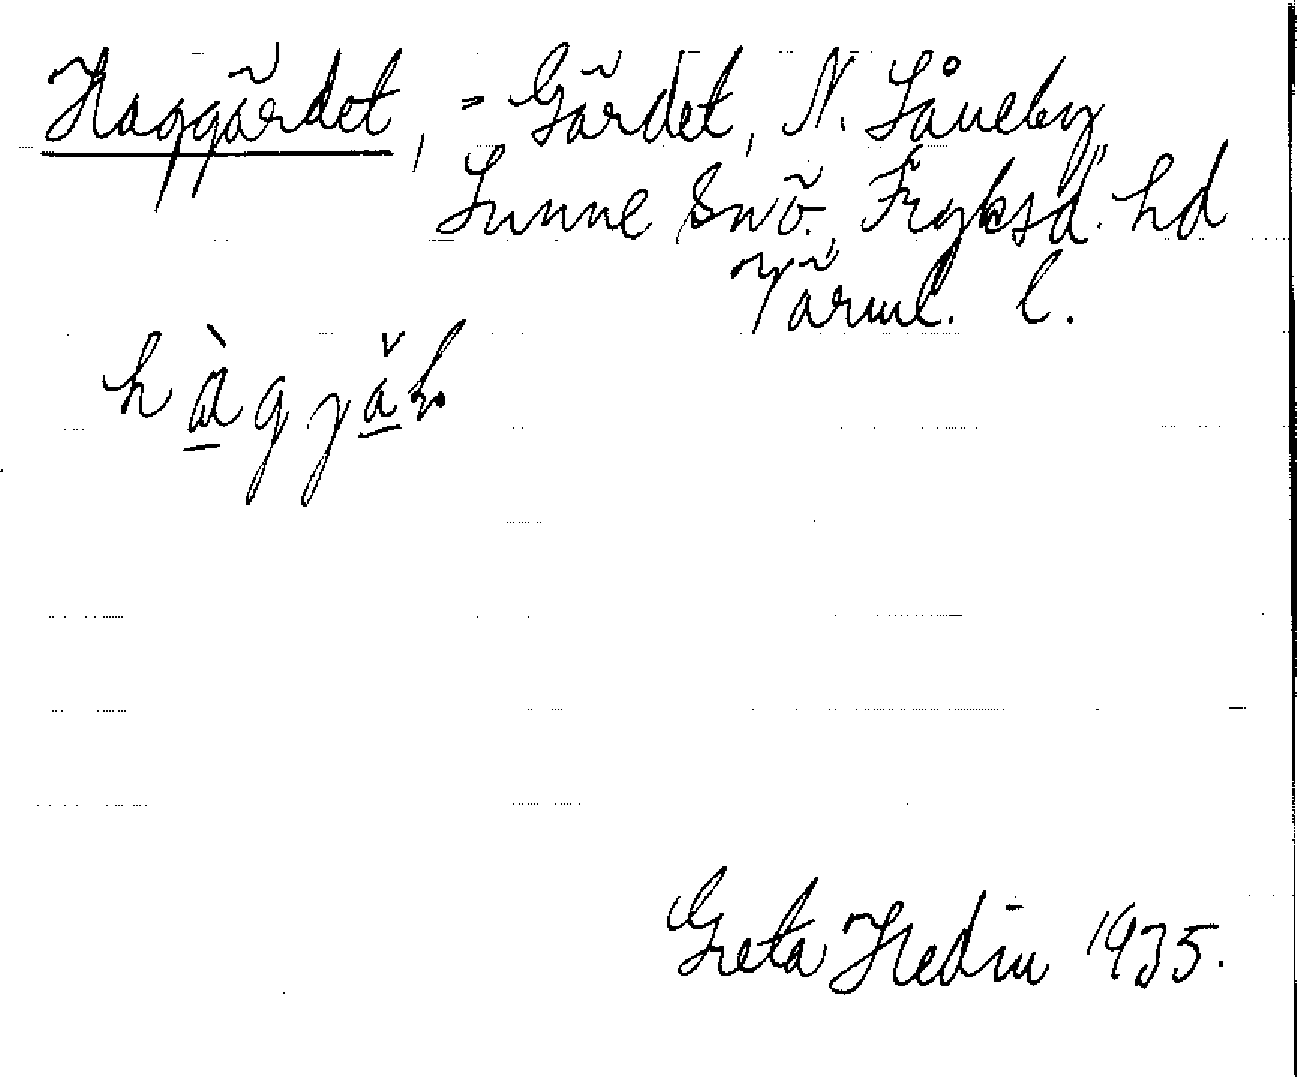 Haggärdet, - Gärdet, N. Såneby
Sunne snö. Fryksd. hd
Värml. l.
Greta Hedin 1935.